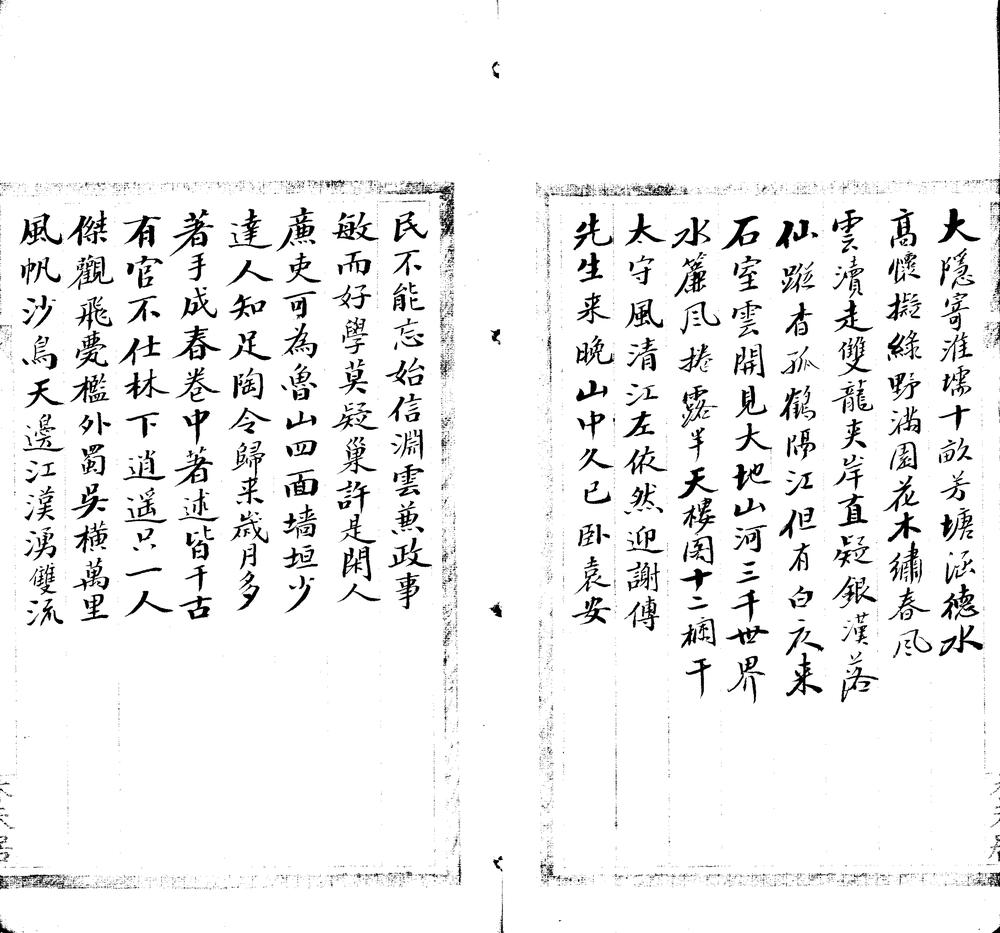 大隱寄淮壖十畝芳塘涵德水
高懷擬綠野滿園花木繡春风
雲瀆走雙龍夾岸直疑銀漢落
仙蹤杳孤鶴隔江但有白衣来
石室雲開見大地山河三千世界
水簾风捲露半天樓閣十二欄干
太守風清江左依然迎謝傅
先生来晚山中久已卧袁安
民不能忘始信淵雲兼政事
敏而好學莫疑巢許是閑人
廉吏可為魯山四面墙垣少
達人知足陶令歸来歲月多
著手成春巻中著述皆千古
有官不仕林下逍遥只一人
傑觀飛甍檻外蜀吳横萬里
風帆沙鳥天邊江漢湧雙流